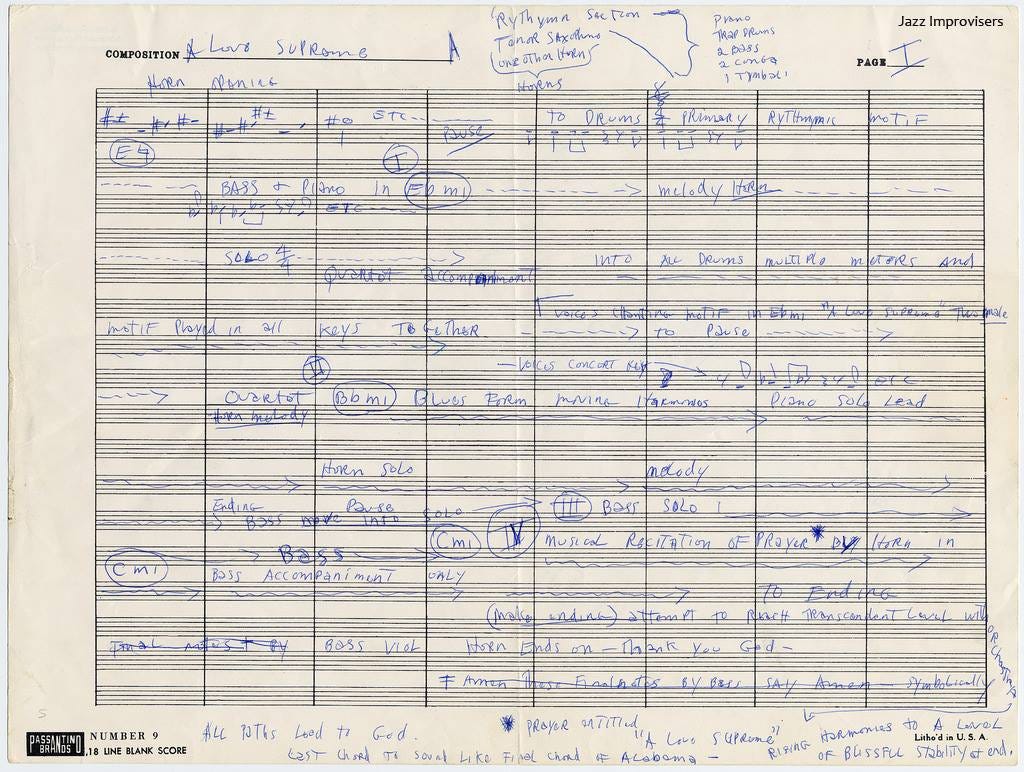 Jazz Improvisers
Rythymn Section
Tenor Saxophone
(one other horn)
Horns
Piano
TRAP DRUMS
2 BASS
2 CONGA
1 Tymbali
COMPOSITION A Love Supreme A
PAGE I
HORN OPENING
ETC
PAUSE
TO DRUMS PRIMARY RYTHMMIC MOTIF
E♮
I
BASS & PIANO IN Ebmi melody Horn
ETC
SOLO 4/4 INTO ALL DRUMS MULTIPLE METERS AND
QUARTET Accompaniment
VOICES CHANTING MOTIF IN Ebmi "A LOVE SUPREME" Two male
MOTIF Played in all KEYS TOGETHER TO PAUSE
VOICES CONCERT KEY ETC
II
QUARTET Bbmi BLUES FORM MOVING HARMONIES PIANO SOLO LEAD
Horn melody
HORN SOLO melody
Ending Pause SOLO III BASS SOLO
BASS move INTO
Cmi IV MUSICAL RECITATION OF PRAYER * BY HORN IN
BASS
Cmi BASS ACCOMPANIMENT ONLY
TO Ending
(make ending) attempt to Reach TRANSCENDENT Level with ORCHESTRA
Final notes BY BASS VIOL HORN ENDS ON — Thank You God —
Amen These Final notes BY BASS SAY Amen — symbolically
S
PASSANTINO BRANDS NUMBER 9
18 LINE BLANK SCORE
Litho'd in U. S. A.
ALL PATHS Lead TO God.
* PRAYER ENTITLED
"A LOVE SUPREME"
LAST CHORD TO SOUND LIKE FINAL CHORD OF ALABAMA —
RISING HARMONIES TO A LEVEL
OF BLISSFUL STABILITY at end.